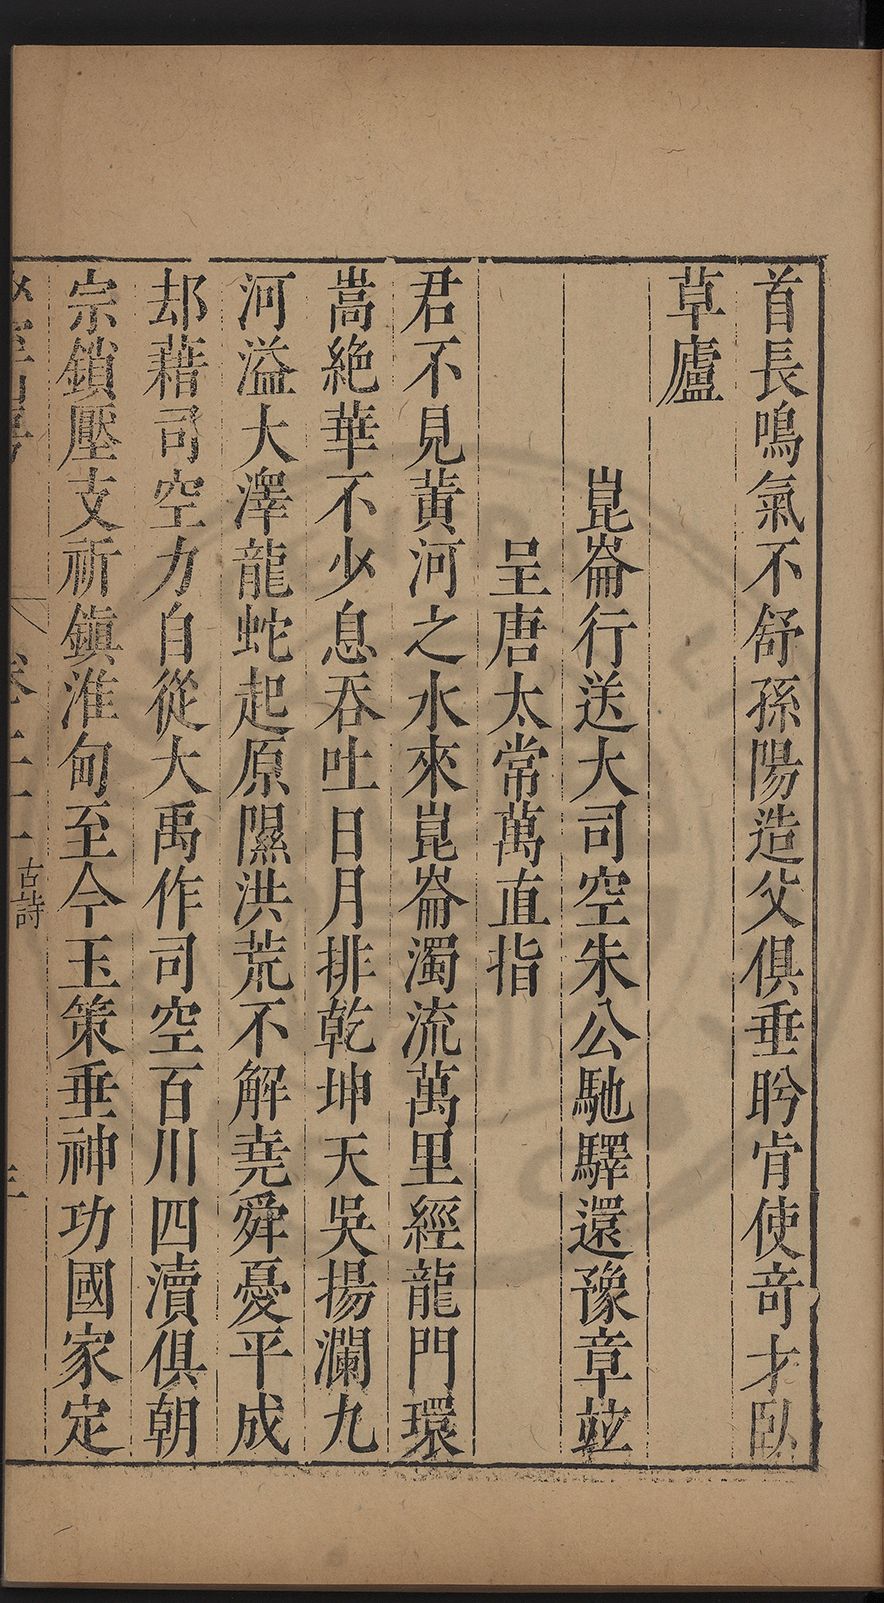 首長鳴氣不舒孫陽造父俱垂盻肯使竒才臥
草廬
崑崙行送大司空朱公馳驛還豫章竝
呈唐太常萬直指
君不見黃河之水來崑崙濁流萬里經龍門環
嵩絶華不少息吞吐日月排乾坤天吳揚瀾九
河溢大澤龍蛇起原隰洪荒不解堯舜憂平成
却藉司空力自從大禹作司空百川四瀆俱朝
宗鎖壓支祈鎮淮甸至今玉策垂神功國家定
古詩